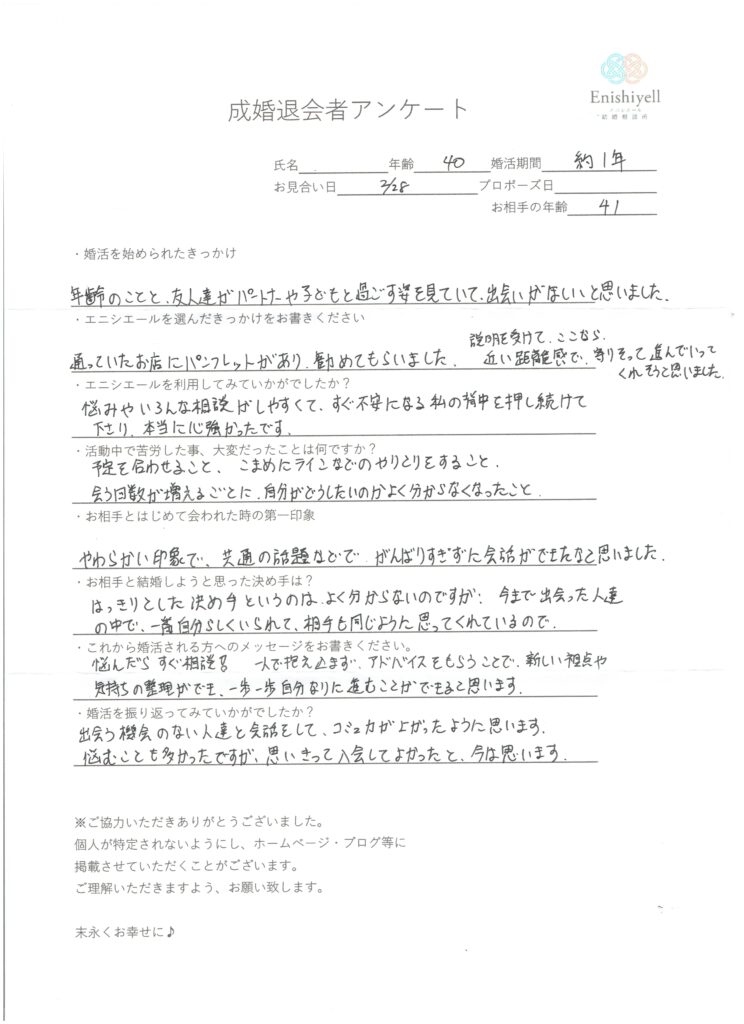 Enishiyell
エニシエール
結婚相談所
成婚退会者アンケート
氏名 年齢 40 婚活期間 約1年
お見合い日 2/28 プロポーズ日
お相手の年齢 41
・婚活を始められたきっかけ
年齢のことと、友人達がパートナーや子どもと過ごす姿を見ていて、出会いがほしいと思いました。
・エニシエールを選んだきっかけをお書きください
通っていたお店にパンフレットがあり、勧めてもらいました。
説明を受けて、ここなら、
近い距離感で、寄りそって進んでいって
くれそうと思いました。
・エニシエールを利用してみていかがでしたか？
悩みやいろんな相談がしやすくて、すぐ不安になる私の背中を押し続けて
下さり、本当に心強かったです。
・活動中で苦労した事、大変だったことは何ですか？
予定を合わせること、こまめにラインなどのやりとりをすること、
会う回数が増えるごとに、自分がどうしたいのかよく分からなくなったこと。
・お相手とはじめて会われた時の第一印象
やわらかい印象で、共通の話題などで、がんばりすぎずに会話ができたなと思いました。
・お相手と結婚しようと思った決め手は？
はっきりとした決め手というのは、よく分からないのですが、今まで出会った人達
の中で、一番自分らしくいられて、相手も同じように思ってくれているので。
・これから婚活される方へのメッセージをお書きください。
悩んだらすぐ相談を 一人で抱え込まず、アドバイスをもらうことで、新しい視点や
気持ちの整理ができ、一歩一歩自分なりに進むことができると思います。
・婚活を振り返ってみていかがでしたか？
出会う機会のない人達と会話をして、コミュ力が上がったように思います。
悩むことも多かったですが、思いきって入会してよかったと、今は思います。
※ご協力いただきありがとうございました。
個人が特定されないようにし、ホームページ・ブログ等に
掲載させていただくことがございます。
ご理解いただきますよう、お願い致します。
末永くお幸せに♪